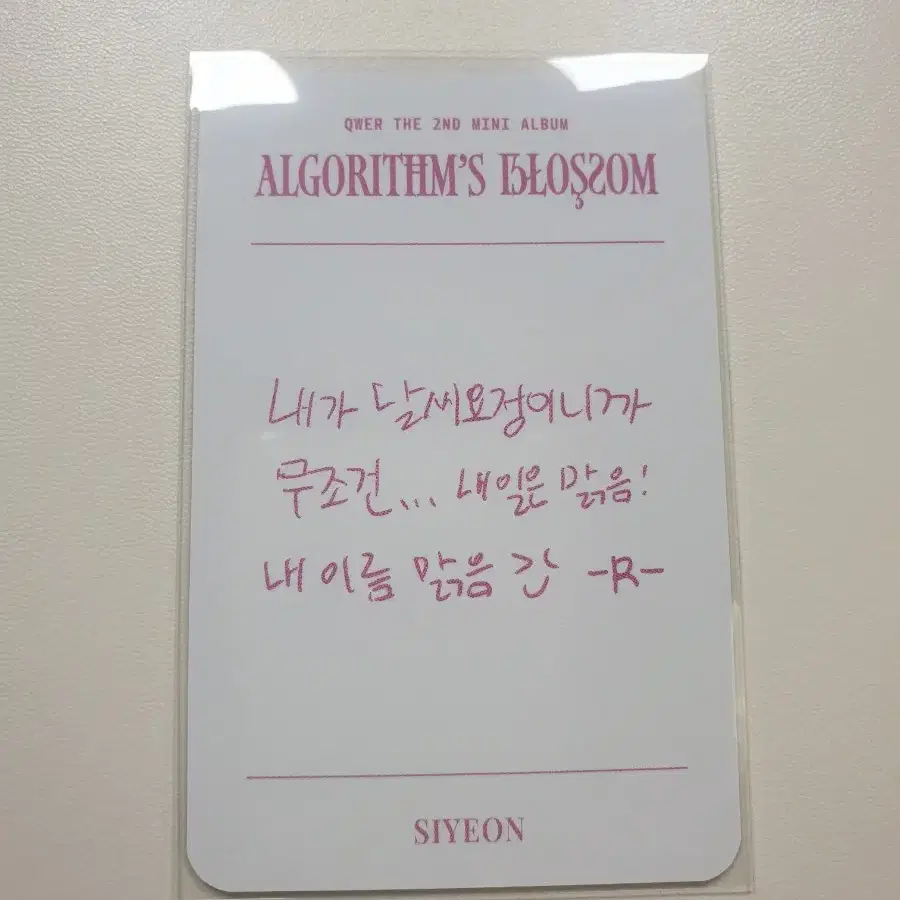 QWER THE 2ND MINI ALBUM
ALGORITHM'S BLOSSOM
내가 날씨요정이니까
무조건... 내일은 맑음!
내 이름 맑음 간 -R-
SIYEON